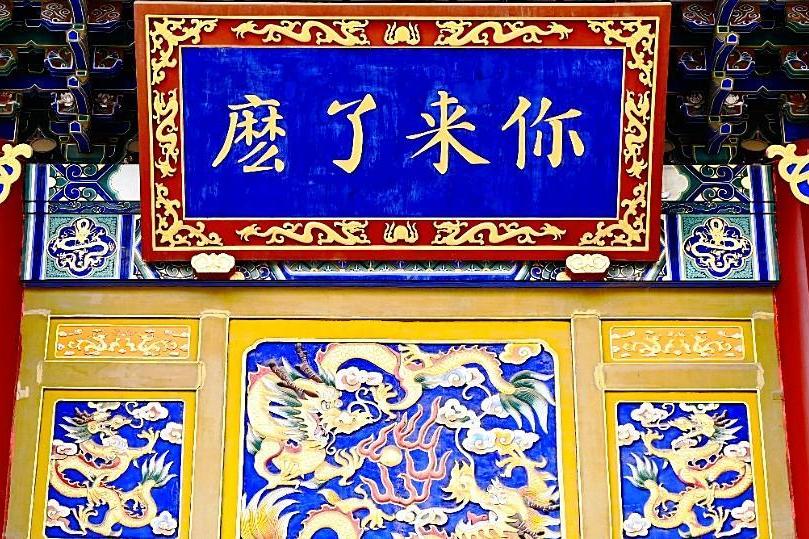 你来了麽